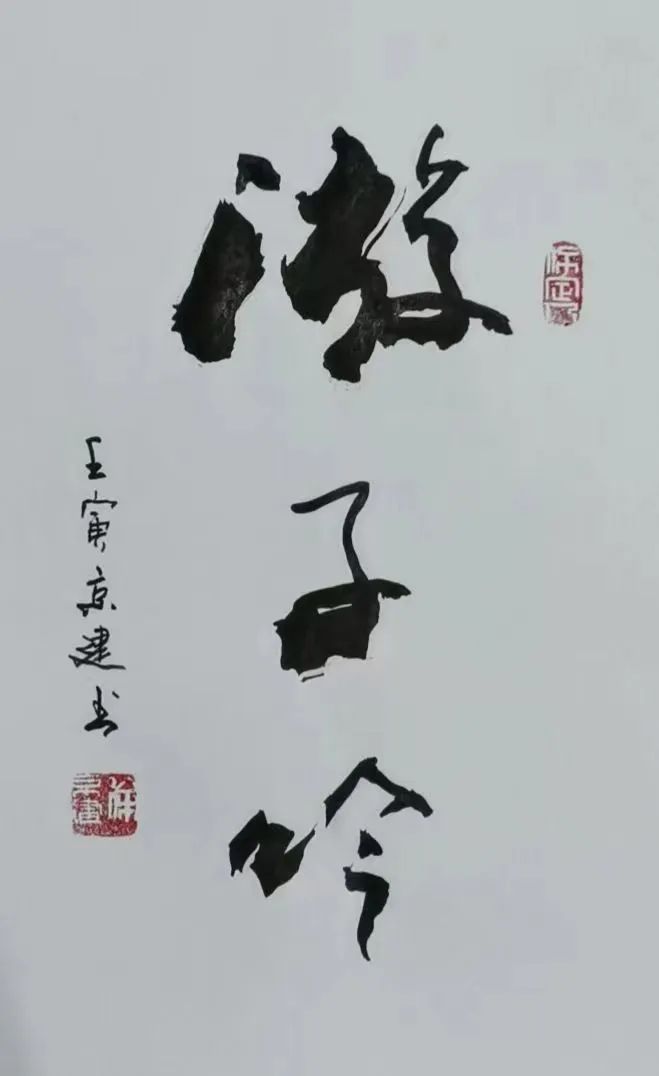 游子吟
壬寅京建书